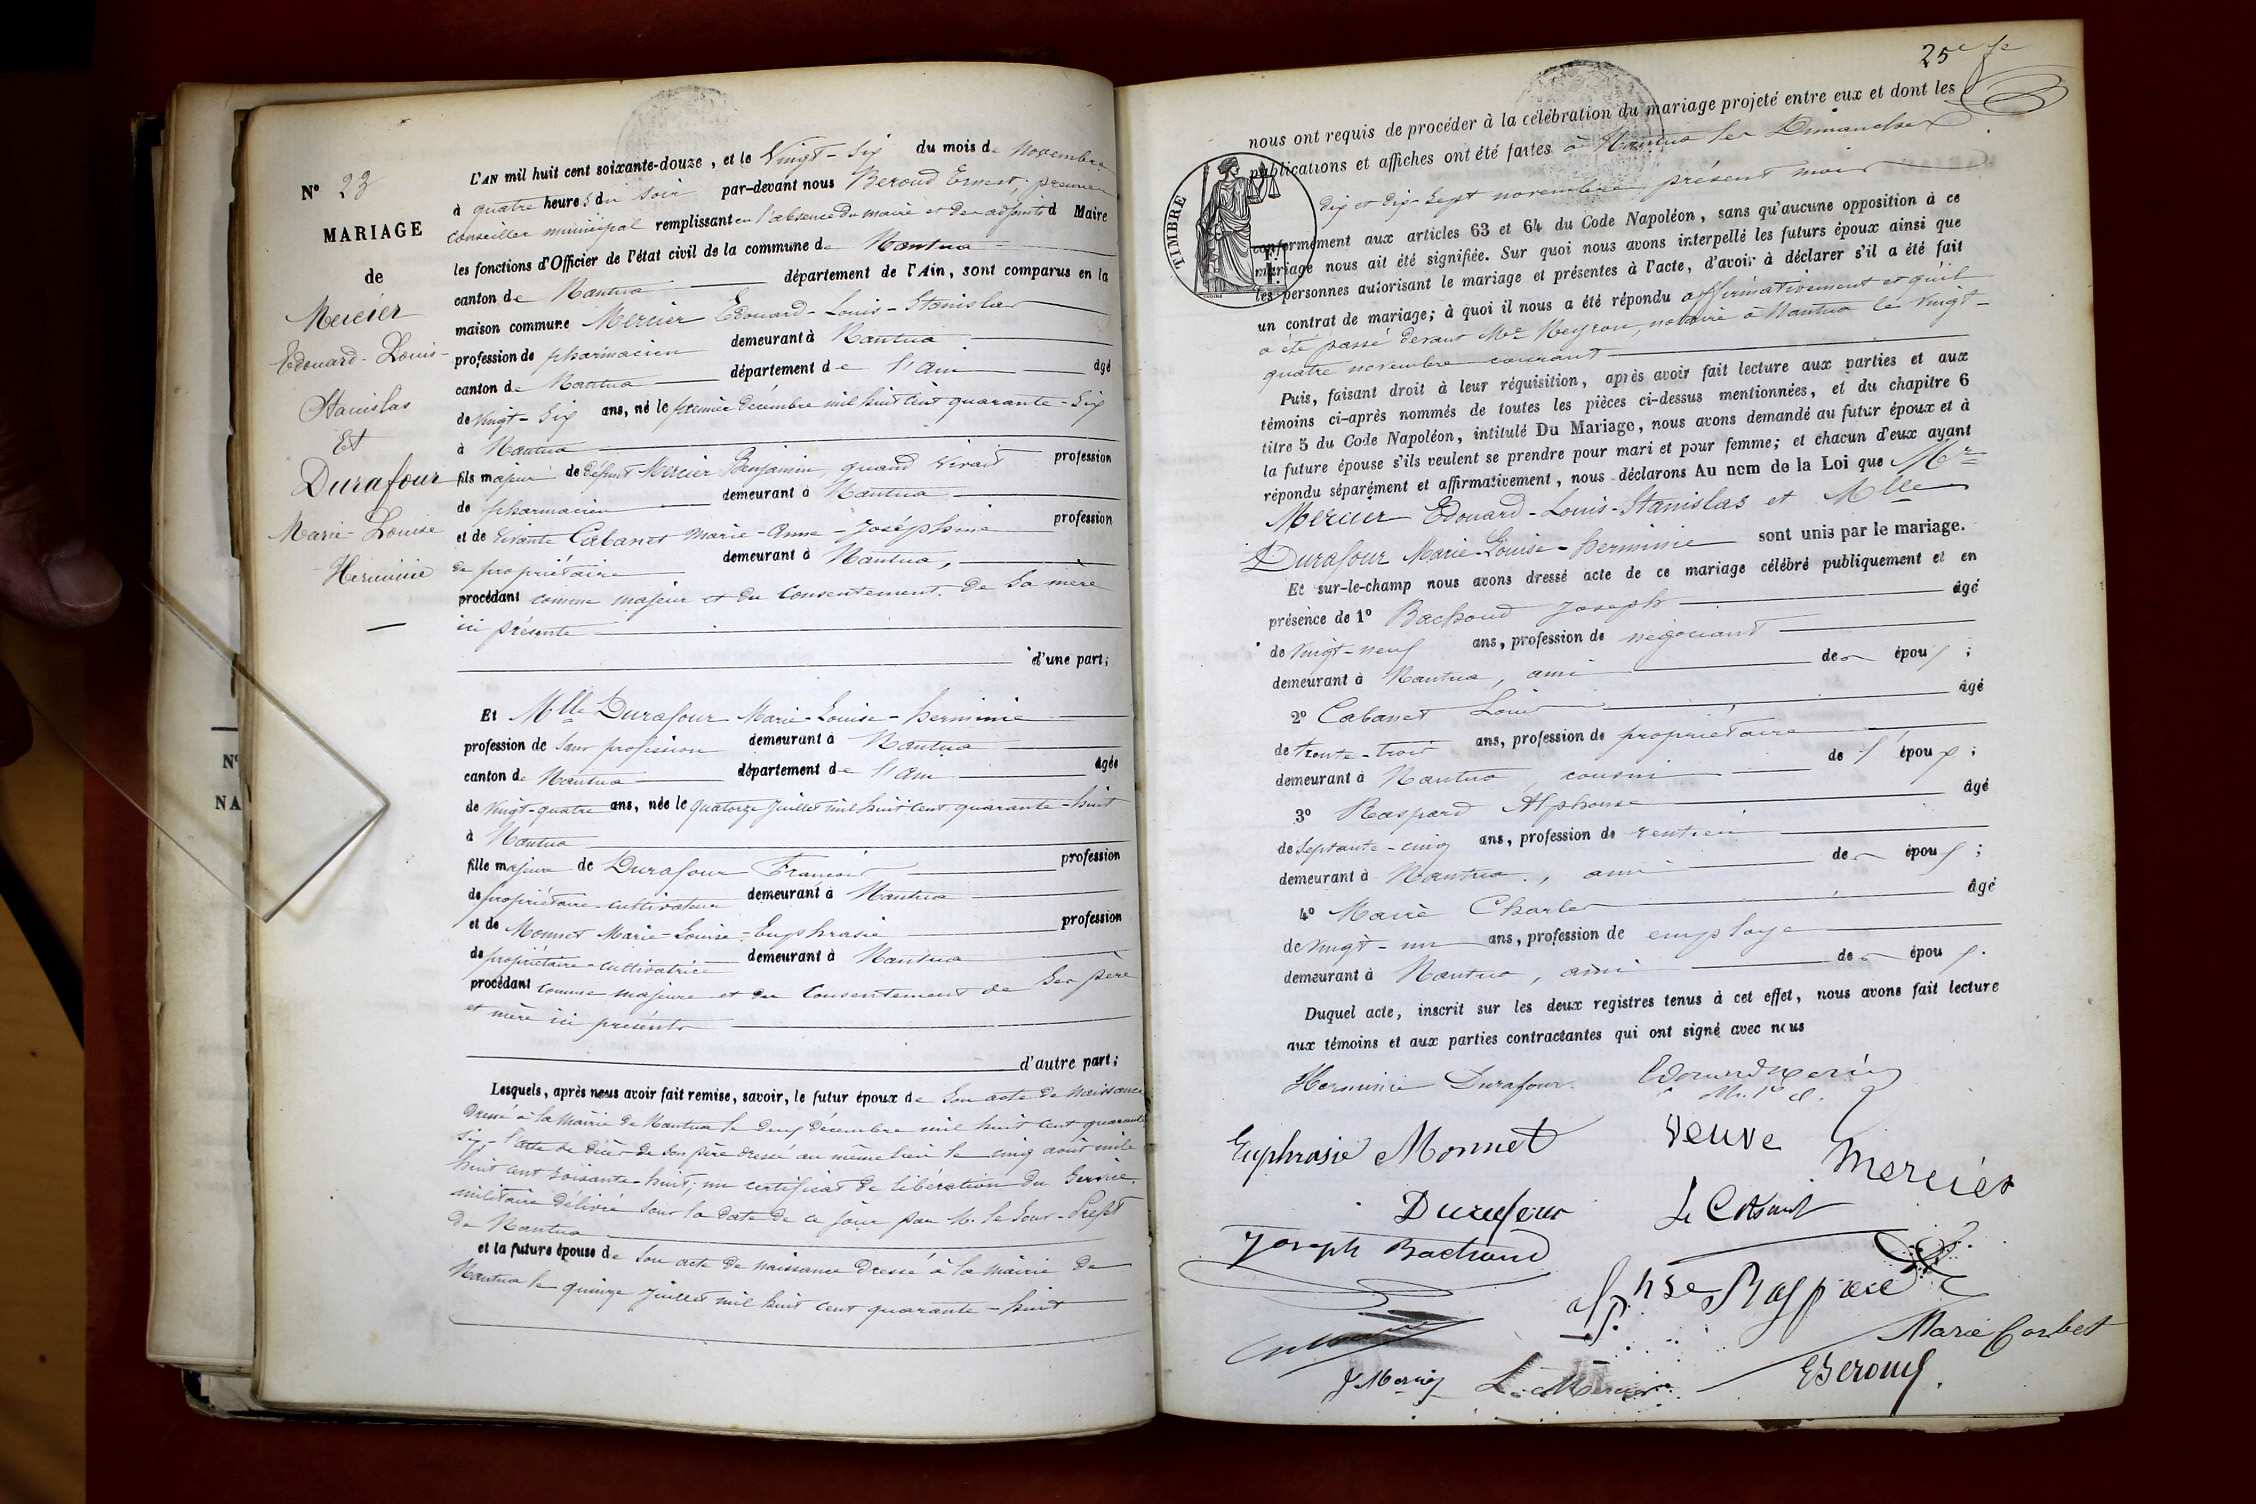 N° 23
MARIAGE
de
Mercier
Edouard-Louis-
Stanislas
Et
Durafour
Marie-Louise
Herminie
N°
NA
L'AN mil huit cent soixante-douze, et le Vingt-six du mois de novembre
à quatre heures du soir par-devant nous Beroud Ernest, premier
Conseiller municipal remplissant en l'absence du maire et des adjoints d Maire
les fonctions d'Officier de l'état civil de la commune de Nantua
canton de Nantua département de l'Ain, sont comparus en la
maison commune Mercier Edouard-Louis-Stanislas
profession de pharmacien demeurant à Nantua
canton de Nantua département de l'Ain âgé
de vingt-six ans, né le premier décembre mil huit cent quarante-six
à Nantua
fils majeur de défunt Mercier Benjamin, quand vivait profession
de pharmacien demeurant à Nantua
et de vivante Cabanet Marie-Anne-Joséphine profession
de propriétaire demeurant à Nantua,
procédant comme majeur et du consentement de sa mère
ici présente
d'une part;
Et Mlle Durafour Marie-Louise-herminie
profession de sans profession demeurant à Nantua
canton de Nantua département de l'Ain âgée
de vingt-quatre ans, née le quatorze juillet mil huit cent quarante-huit
à Nantua
fille majeure de Durafour François profession
de propriétaire-cultivateur demeurant à Nantua
et de Monnet Marie-Louise-Euphrasie profession
de propriétaire-cultivatrice demeurant à Nantua
procédant comme majeure et du consentement de ses père
et mère ici présents
d'autre part;
Lesquels, après nous avoir fait remise, savoir, le futur époux de son acte de naissance
dressé à la mairie de Nantua le deux décembre mil huit cent quarante
six - l'acte de décès de son père dressé au même lieu le cinq août mil
huit cent soixante-huit; un certificat de libération du service
militaire délivré sous la date de ce jour par M. le Sous-Préfet
de Nantua
et la future épouse de son acte de naissance dressé à la mairie de
Nantua le quinze juillet mil huit cent quarante-huit
25e fe
nous ont requis de procéder à la célébration du mariage projeté entre eux et dont les
publications et affiches ont été faites à Nantua les Dimanches
dix et dix-sept novembre, présent mois
conformément aux articles 63 et 64 du Code Napoléon, sans qu'aucune opposition à ce
mariage nous ait été signifiée. Sur quoi nous avons interpellé les futurs époux ainsi que
les personnes autorisant le mariage et présentes à l'acte, d'avoir à déclarer s'il a été fait
un contrat de mariage; à quoi il nous a été répondu affirmativement et qu'il
a été passé devant Me Neyron, notaire à Nantua le vingt-
quatre novembre courant
TIMBRE
Puis, faisant droit à leur réquisition, après avoir fait lecture aux parties et aux
témoins ci-après nommés de toutes les pièces ci-dessus mentionnées, et du chapitre 6
titre 5 du Code Napoléon, intitulé Du Mariage, nous avons demandé au futur époux et à
la future épouse s'ils veulent se prendre pour mari et pour femme; et chacun d'eux ayant
répondu séparément et affirmativement, nous déclarons Au nom de la Loi que Mr
Mercier Edouard-Louis-Stanislas et Mlle
Durafour Marie-Louise-herminie sont unis par le mariage.
Et sur-le-champ nous avons dressé acte de ce mariage célébré publiquement et en
présence de 1° Bachoud Joseph âgé
de vingt-neuf ans, profession de négociant
demeurant à Nantua, ami des époux;
2° Cabanet Louis âgé
de trente-trois ans, profession de propriétaire
demeurant à Nantua, cousin de l'époux;
3° Raspard Alphonse âgé
de septante-cinq ans, profession de rentier
demeurant à Nantua, ami des époux;
4° Charles âgé
de vingt-un ans, profession de employé
demeurant à Nantua, ami des époux.
Duquel acte, inscrit sur les deux registres tenus à cet effet, nous avons fait lecture
aux témoins et aux parties contractantes qui ont signé avec nous
Herminie Durafour
Euphrasie Monnet Veuve Mercier
Durafour
Joseph Bachoud
Marie Corbet
J Mercier
EBeroud